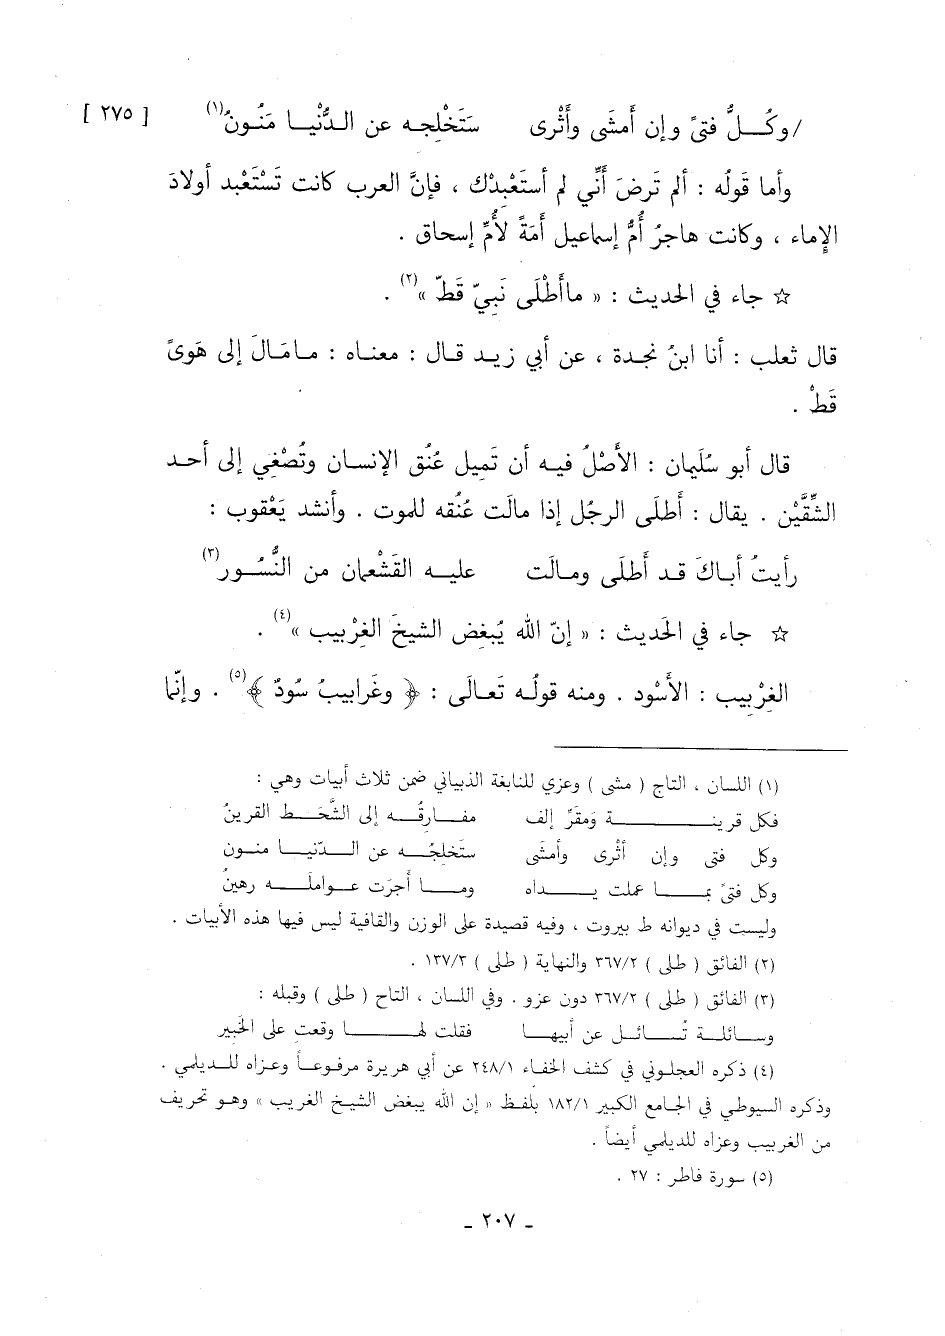 /وكُــلُّ فتىً وإن أَمشَى وأَثْرى ستَخْلجـه عن الدُّنْيا مَنُـونُ(١) [ ٢٧٥ ]
وأما قَولُه : ألم تَرضَ أنَّي لم أستَعْبِدْك ، فإنَّ العرب كانت تَسْتَعْبِد أولادَ
الإماء ، وكانت هاجرُ أُمُّ إسماعيل أَمَةً لأُمِّ إسحاق .
☆ جاء في الحديث : « ماأَطْلَى نَبِيّ قَطّ »(٢) .
قال ثعلب : أنا ابنُ نجدة ، عن أبي زيد قال : معناه : مامَالَ إلى هَوىً
قَطْ .
قال أبو سُليمان : الأَصْلُ فيه أن تَمِيل عُنُق الإنسان وتُصْغِي إلى أحد
الشِّقَّيْن . يقال : أَطلَى الرجُل إذا مالَت عُنُقه للموت . وأنشد يَعْقوب :
رأيتُ أباكَ قد أَطلَى ومالَت عليه القَشْعَمان من النُّسُور(٣)
☆ جاء في الحَديث : « إنّ الله يُبغض الشيخَ الغِرْبيب »(٤) .
الغِرْبيب : الأَسْود . ومنه قولُه تَعالَى : ﴿ وغَرابيبُ سُودٌ ﴾(٥) . وإنّا
(١) اللسان ، التاج ( مشى ) وعزي للنابغة الذبياني ضمن ثلاث أبيات وهي :
فكل قرينة وَمَقرّ إلف مفارقُه إلى الشَّحَط القرينُ
وكل فتى وإن أثْرى وأمشَى ستَخلجُه عن الدّنيا منون
وكل فتىً بما عملت يداه وما أجرَت عوامله رهينُ
وليست في ديوانه ط بيروت ، وفيه قصيدة على الوزن والقافية ليس فيها هذه الأبيات .
(٢) الفائق ( طلى ) ٣٦٧/٢ والنهاية ( طلى ) ١٣٧/٣ .
(٣) الفائق ( طلى ) ٣٦٧/٢ دون عزو . وفي اللسان ، التاح ( طلى ) وقبله :
وسائلة تُسائل عن أبيها فقلت لها وقعتِ على الخَبير
(٤) ذكره العجلوني في كشف الخفاء ٢٤٨/١ عن أبي هريرة مرفوعاً وعزاه للديلمي .
وذكره السيوطي في الجامع الكبير ١٨٢/١ بلفظ « إن الله يبغض الشيخ الغريب » وهو تحريف
من الغربيب وعزاه للديلمي أيضاً .
(٥) سورة فاطر : ٢٧ .
ـ ٢٠٧ ـ